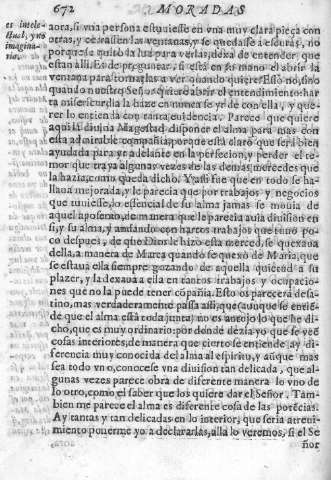 672 MORADAS
es intele-
ctual, y no
imagina-
rio.
aora, si vna persona estuuiesse en vna muy clara pieça con
otras, y cerrassen las ventanas, y se quedasse a escuras, no
porque se quitò la luz para verlas, dexa de entender que
estan alli. Es de preguntar, si està en su mano el abrir la
ventana para tornarlas a ver quando quiere? Esso no, sino
quando nuestro Señor quiere abrir el entendimiento: har
ta misericordia la haze en nunca se yr de con ella, y que-
rer lo entienda con tanta euidencia. Parece que quiere
aqui la diuina Magestad disponer el alma para mas con
esta admirable compañia, porque està claro que serà bien
ayudada para yr adelante en la perfecion, y perder el te-
mor que traya algunas vezes de las demas mercedes que
la hazia, como queda dicho. Y assi fue que en todo se ha-
llaua mejorada, y le parecia que por trabajos y negocios
que tuuiesse, lo essencial de su alma jamas se mouia de
aquel aposento, de manera que le parecia auia diuision en
si, y su alma, y andando con hartos trabajos que tuuo po-
co despues, de que Dios le hizo esta merced, se quexaua
della, a manera de Marta quando se quexò de Maria, que
se estaua ella siempre gozando de aquella quietud a su
plazer, y la dexaua a ella en tantos trabajos y ocupacio-
nes que no la puede tener compañia. Esto os parecerà desa-
tino, mas verdaderamente passa assi, que (aunque se entié-
de que el alma està toda junta) no es antojo lo que he di-
cho, que es muy ordinario: por donde dezia yo que se veé
cosas interiores, de manera que cierto se entiende ay di-
ferencia muy conocida del alma al espiritu, y aũque mas
sea todo vno, conocese vna diuision tan delicada, que al-
gunas vezes parece obra de diferente manera lo vno de
lo otro, como el sabor que los quiere dar el Señor. Tam-
bien me parece el alma es diferente cosa de las potẽcias.
Ay tantas y tan delicadas en lo interior, que seria atreui-
miento ponerme yo a declararlas, allà lo veremos, si el Se
ñor